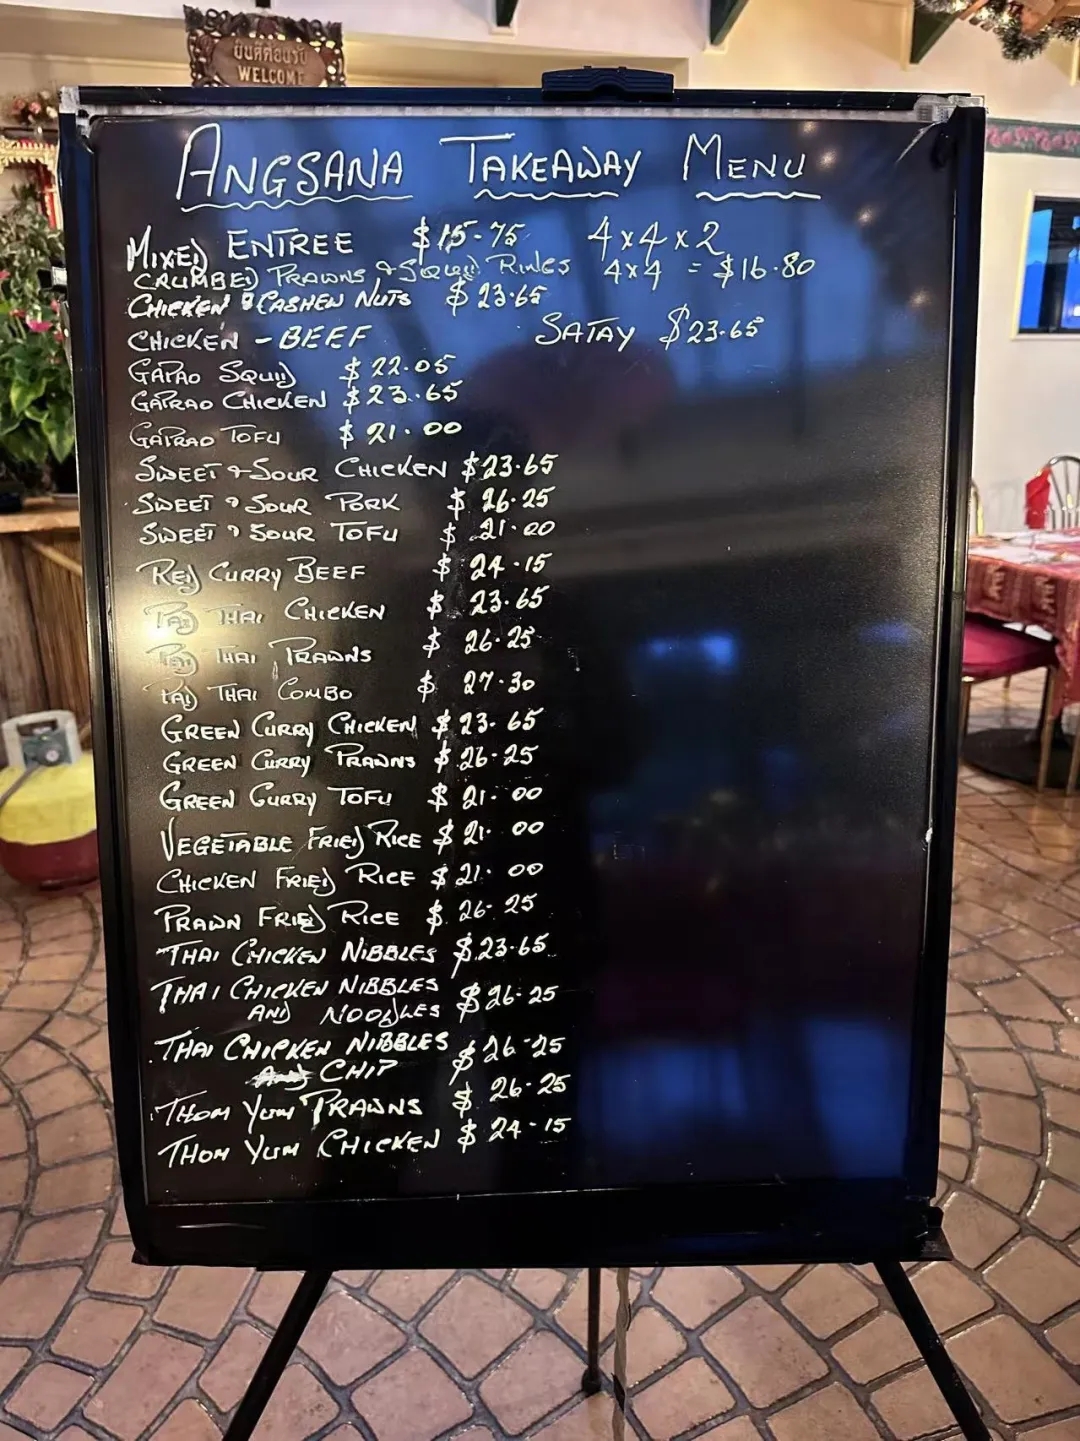 ยินดีต้อนรับ
WELCOME
ANGSANA TAKEAWAY MENU
MIXED ENTREE $15.75 4x4x2
CRUMBED PRAWNS & SQUID RINGS 4x4 = $16.80
CHICKEN & CASHEW NUTS $23.65
CHICKEN - BEEF SATAY $23.65
GAPAO SQUID $22.05
GAPRAO CHICKEN $23.65
GAPRAO TOFU $21.00
SWEET & SOUR CHICKEN $23.65
SWEET & SOUR PORK $26.25
SWEET & SOUR TOFU $21.00
RED CURRY BEEF $24.15
PAD THAI CHICKEN $23.65
PAD THAI PRAWNS $26.25
PAD THAI COMBO $27.30
GREEN CURRY CHICKEN $23.65
GREEN CURRY PRAWNS $26.25
GREEN CURRY TOFU $21.00
VEGETABLE FRIED RICE $21.00
CHICKEN FRIED RICE $21.00
PRAWN FRIED RICE $26.25
THAI CHICKEN NIBBLES $23.65
THAI CHICKEN NIBBLES
AND NOODLES $26.25
THAI CHICKEN NIBBLES $26.25
CHIP
THOM YUM PRAWNS $26.25
THOM YUM CHICKEN $24.15